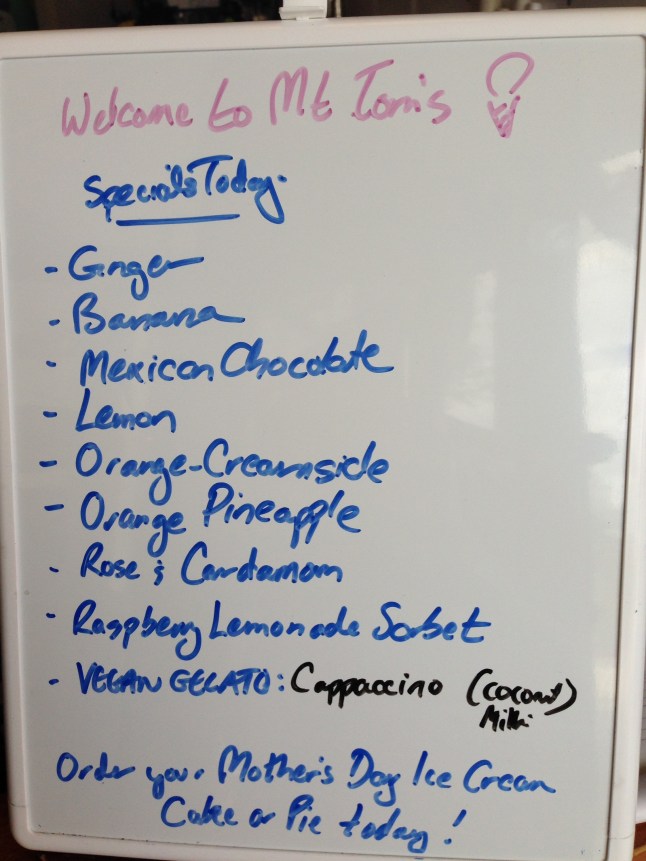 Welcome to Mt Tom's
Specials Today.
- Ginger
- Banana
- Mexican Chocolate
- Lemon
- Orange-Creamsicle
- Orange Pineapple
- Rose & Cardamom
- Raspberry Lemonade Sorbet
- VEGAN GELATO: Cappaccino (Coconut)
Milk
Order your Mother's Day Ice Cream
Cake or Pie today!